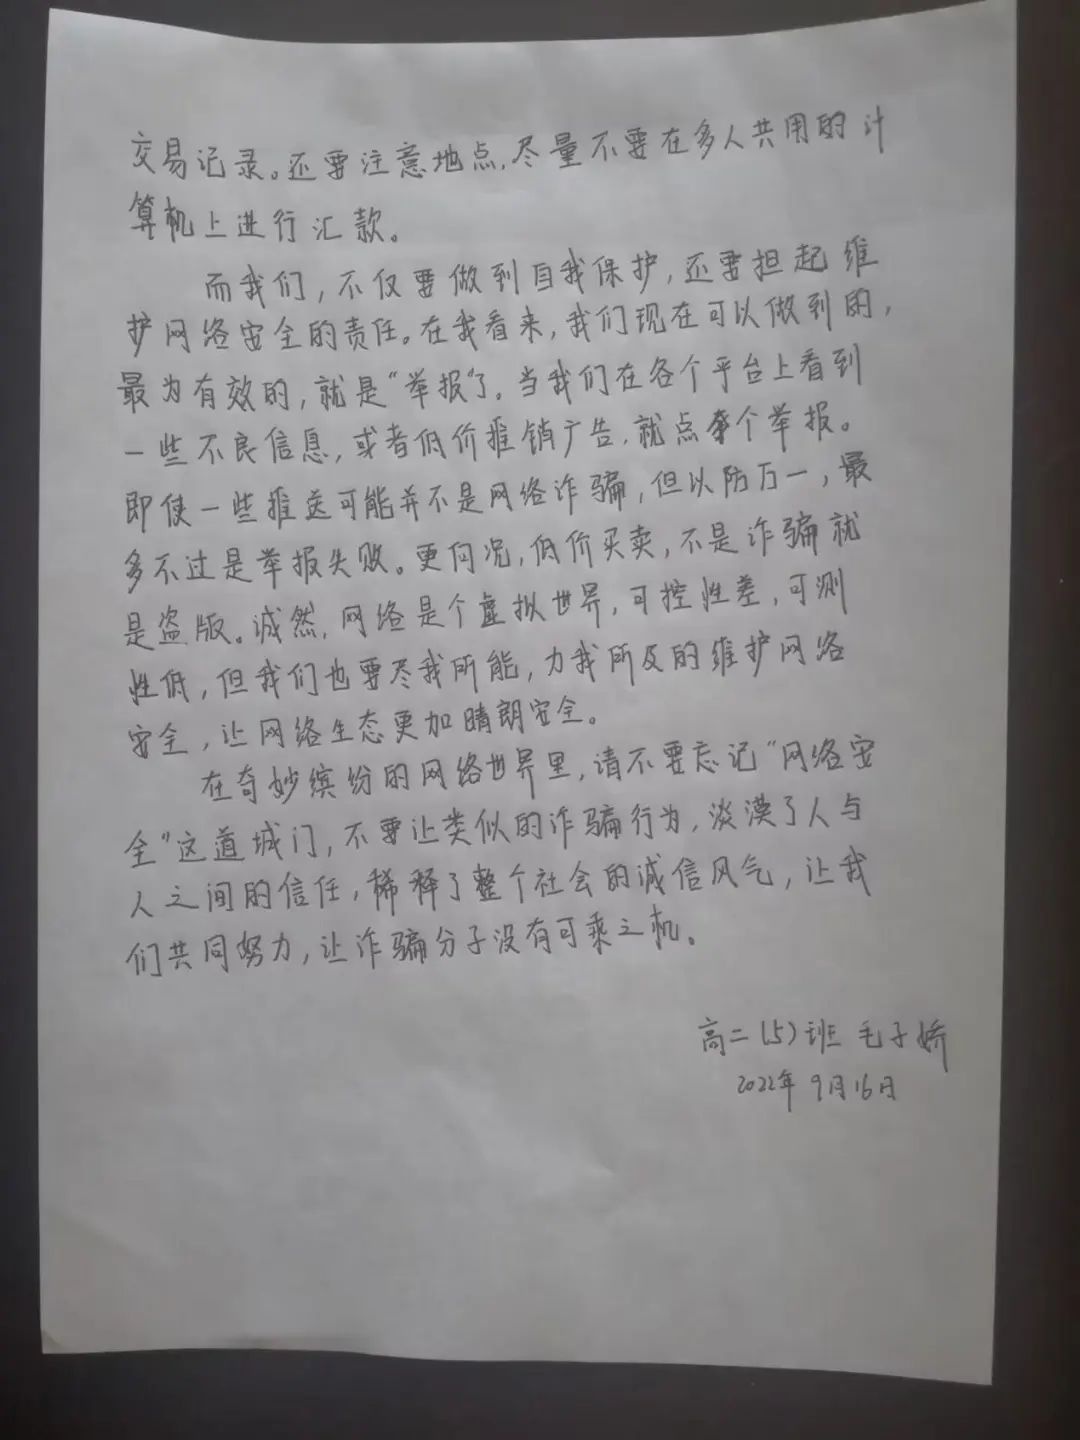 交易记录。还要注意地点，尽量不要在多人共用的计
算机上进行汇款。
而我们，不仅要做到自我保护，还要担起维
护网络安全的责任。在我看来，我们现在可以做到的，
最为有效的，就是“举报”了。当我们在各个平台上看到
一些不良信息，或者低价推销广告，就点个举报。
即使一些推送可能并不是网络诈骗，但以防万一，最
多不过是举报失败。更何况，低价买卖，不是诈骗就
是盗版。诚然，网络是个虚拟世界，可控性差，可测
性低，但我们也要尽我所能，力我所及的维护网络
安全，让网络生态更加晴朗安全。
在奇妙缤纷的网络世界里，请不要忘记“网络安
全”这道城门，不要让类似的诈骗行为，淡漠了人与
人之间的信任，稀释了整个社会的诚信风气，让我
们共同努力，让诈骗分子没有可乘之机。
高二(5)班 毛子娇
2022年9月16日